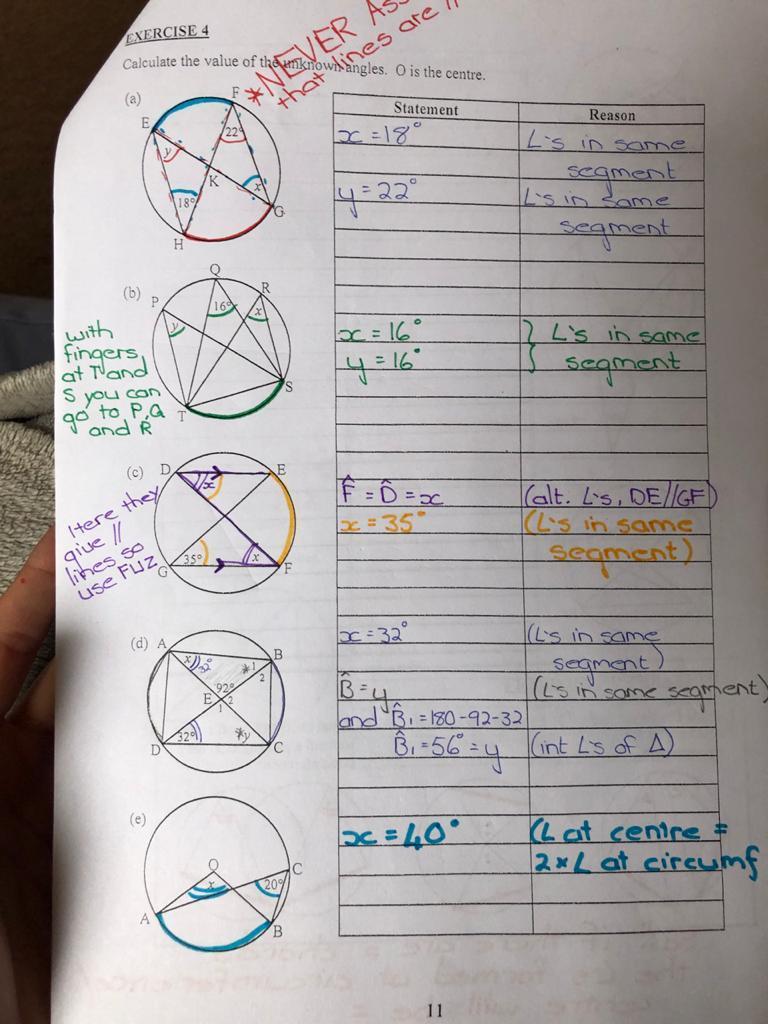 EXERCISE 4
*NEVER Ass
that lines are //
Calculate the value of the unknown angles. O is the centre.
Statement Reason
(a)
E F 22° y K x 18° G H
x = 18° L's in same
segment
y = 22° L's in same
segment
(b)
Q R P 16° x y S T
with
fingers
at T and
S you can
go to P, Q
and R
x = 16° } L's in same
y = 16° } segment
(c)
D E x 35° x G F
Here they
give //
lines so
use FUZ
F̂ = D̂ = x (alt. L's, DE//GF)
x = 35° (L's in same
segment)
(d)
A B x 32° *1 2 92° E 2 1 32° *y D C
x = 32° (L's in same
segment)
B̂ = y (L's in same segment)
and B̂₁ = 180 - 92 - 32
B̂₁ = 56° = y (int L's of Δ)
(e)
O x C 20° A B
x = 40° (L at centre =
2 x L at circumf
11